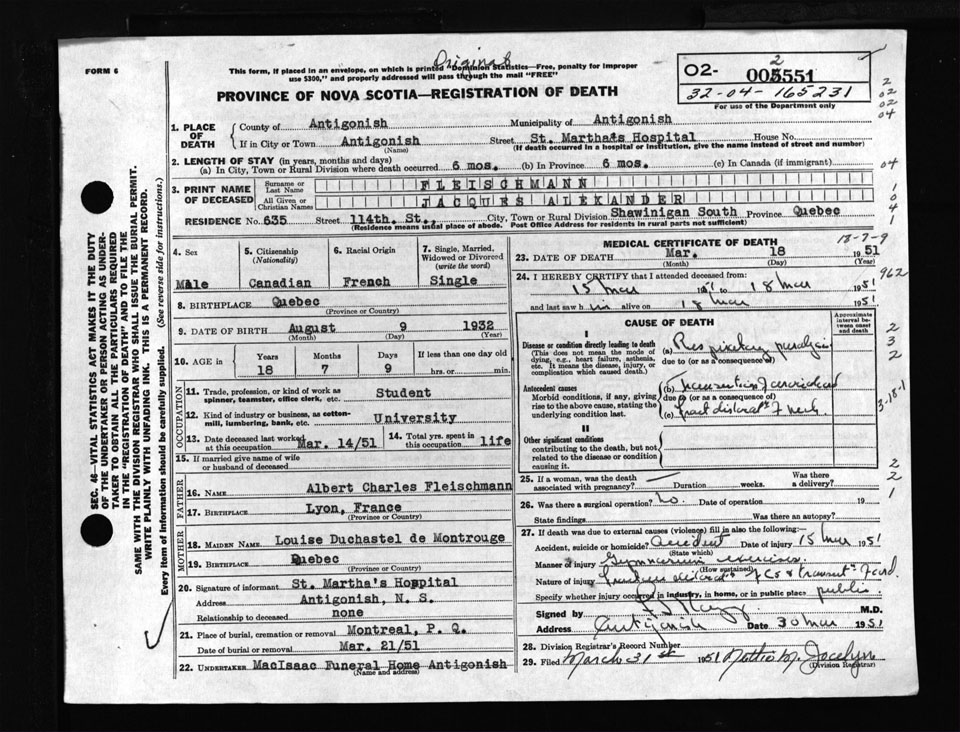 FORM 6
Original
This form, if placed in an envelope, on which is printed "Dominion Statistics—Free, penalty for improper
use $300," and properly addressed will pass through the mail "FREE"
PROVINCE OF NOVA SCOTIA—REGISTRATION OF DEATH
02- 005551
2
32-04-165231
For use of the Department only
2
02
02
04
1. PLACE OF DEATH
County of Antigonish Municipality of Antigonish
If in City or Town Antigonish Street St. Martha's Hospital House No.
(Name) (If death occurred in a hospital or institution, give the name instead of street and number)
2. LENGTH OF STAY (in years, months and days)
(a) In City, Town or Rural Division where death occurred 6 mos. (b) In Province 6 mos. (c) In Canada (if immigrant)
04
3. PRINT NAME OF DECEASED
Surname or Last Name FLEISCHMANN
All Given or Christian Names JACQUES ALEXANDER
1
04
1
RESIDENCE No. 635 Street 114th. St., City, Town or Rural Division Shawinigan South Province Quebec
(Residence means usual place of abode. Post Office Address for residents in rural parts not sufficient)
4. Sex
Male
5. Citizenship (Nationality)
Canadian
6. Racial Origin
French
7. Single, Married, Widowed or Divorced (write the word)
Single
8. BIRTHPLACE Quebec
(Province or Country)
9. DATE OF BIRTH August 9 1932
(Month) (Day) (Year)
10. AGE in Years Months Days If less than one day old
18 7 9 hrs. or min.
OCCUPATION
11. Trade, profession, or kind of work as spinner, teamster, office clerk, etc. Student
12. Kind of industry or business, as cotton-mill, lumbering, bank, etc. University
13. Date deceased last worked at this occupation Mar. 14/51 14. Total yrs. spent in this occupation life
15. If married give name of wife or husband of deceased
FATHER
16. Name Albert Charles Fleischmann
17. Birthplace Lyon, France
(Province or Country)
MOTHER
18. Maiden Name Louise Duchastel de Montrouge
19. Birthplace Quebec
(Province or Country)
20. Signature of informant St. Martha's Hospital
Address Antigonish, N. S.
Relationship to deceased none
21. Place of burial, cremation or removal Montreal, P. Q.
Date of burial or removal Mar. 21/51
22. UNDERTAKER MacIsaac Funeral Home Antigonish
(Name and address)
MEDICAL CERTIFICATE OF DEATH
18-7-9
23. DATE OF DEATH Mar. 18 1951
(Month) (Day) (Year)
24. I HEREBY CERTIFY that I attended deceased from:
15 Mar 1951 to 18 Mar 1951
962
and last saw him alive on 18 Mar 1951
CAUSE OF DEATH
Approximate interval between onset and death
I
Disease or condition directly leading to death
(This does not mean the mode of dying, e.g., heart failure, asthenia, etc. It means the disease, injury, or complication which caused death.)
(a) Respiratory paralysis
due to (or as a consequence of)
2
3
2
Antecedent causes
Morbid conditions, if any, giving rise to the above cause, stating the underlying condition last.
(b)
due to (or as a consequence of)
(c) neck
II
Other significant conditions
contributing to the death, but not related to the disease or condition causing it.
25. If a woman, was the death associated with pregnancy? Duration weeks. Was there a delivery?
2
2
1
26. Was there a surgical operation? No. Date of operation 19
State findings Was there an autopsy?
27. If death was due to external causes (violence) fill in also the following:—
Accident, suicide or homicide? Accident Date of injury 15 Mar 1951
(State which)
Manner of injury Gymnasium exercises.
(How sustained)
Nature of injury
Specify whether injury occurred in industry, in home, or in public place public
Signed by M.D.
Address Antigonish Date 30 Mar 1951
28. Division Registrar's Record Number
29. Filed March 31st 1951 M. Jocelyn
(Division Registrar)
SEC. 46—VITAL STATISTICS ACT MAKES IT THE DUTY
OF THE UNDERTAKER OR PERSON ACTING AS UNDER-
TAKER TO OBTAIN ALL THE PARTICULARS REQUIRED
IN THE "REGISTRATION OF DEATH" AND TO FILE THE
SAME WITH THE DIVISION REGISTRAR WHO SHALL ISSUE THE BURIAL PERMIT.
WRITE PLAINLY WITH UNFADING INK. THIS IS A PERMANENT RECORD.
Every item of information should be carefully supplied. (See reverse side for instructions.)